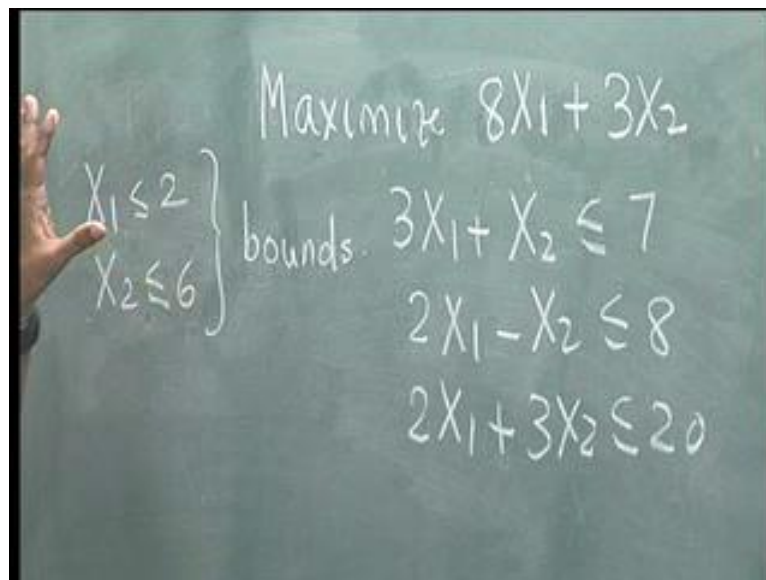 Maximize 8X₁ + 3X₂
X₁ ≤ 2
X₂ ≤ 6
bounds.
3X₁ + X₂ ≤ 7
2X₁ - X₂ ≤ 8
2X₁ + 3X₂ ≤ 20